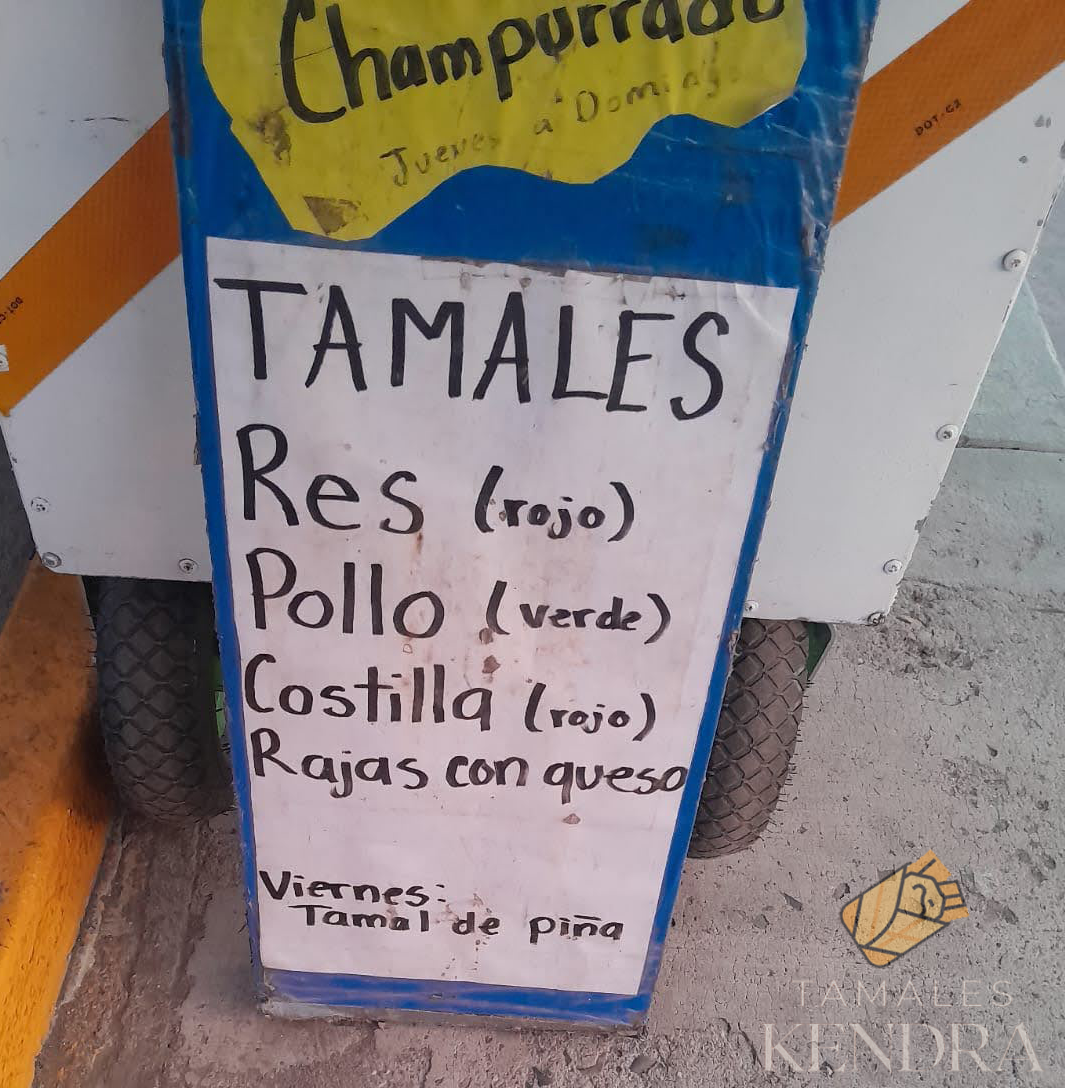 Champurrado
Jueves a Domingo
DOT-C2
TAMALES
Res (rojo)
Pollo (verde)
Costilla (rojo)
Rajas con queso
Viernes:
Tamal de piña
TAMALES
KENDRA